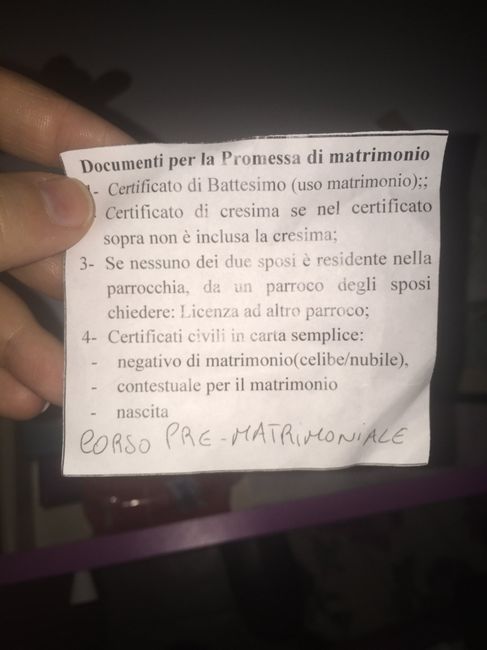 Documenti per la Promessa di matrimonio
1- Certificato di Battesimo (uso matrimonio);;
Certificato di cresima se nel certificato
sopra non è inclusa la cresima;
3- Se nessuno dei due sposi è residente nella
parrocchia, da un parroco degli sposi
chiedere: Licenza ad altro parroco;
4- Certificati civili in carta semplice:
- negativo di matrimonio(celibe/nubile),
- contestuale per il matrimonio
- nascita
CORSO PRE-MATRIMONIALE